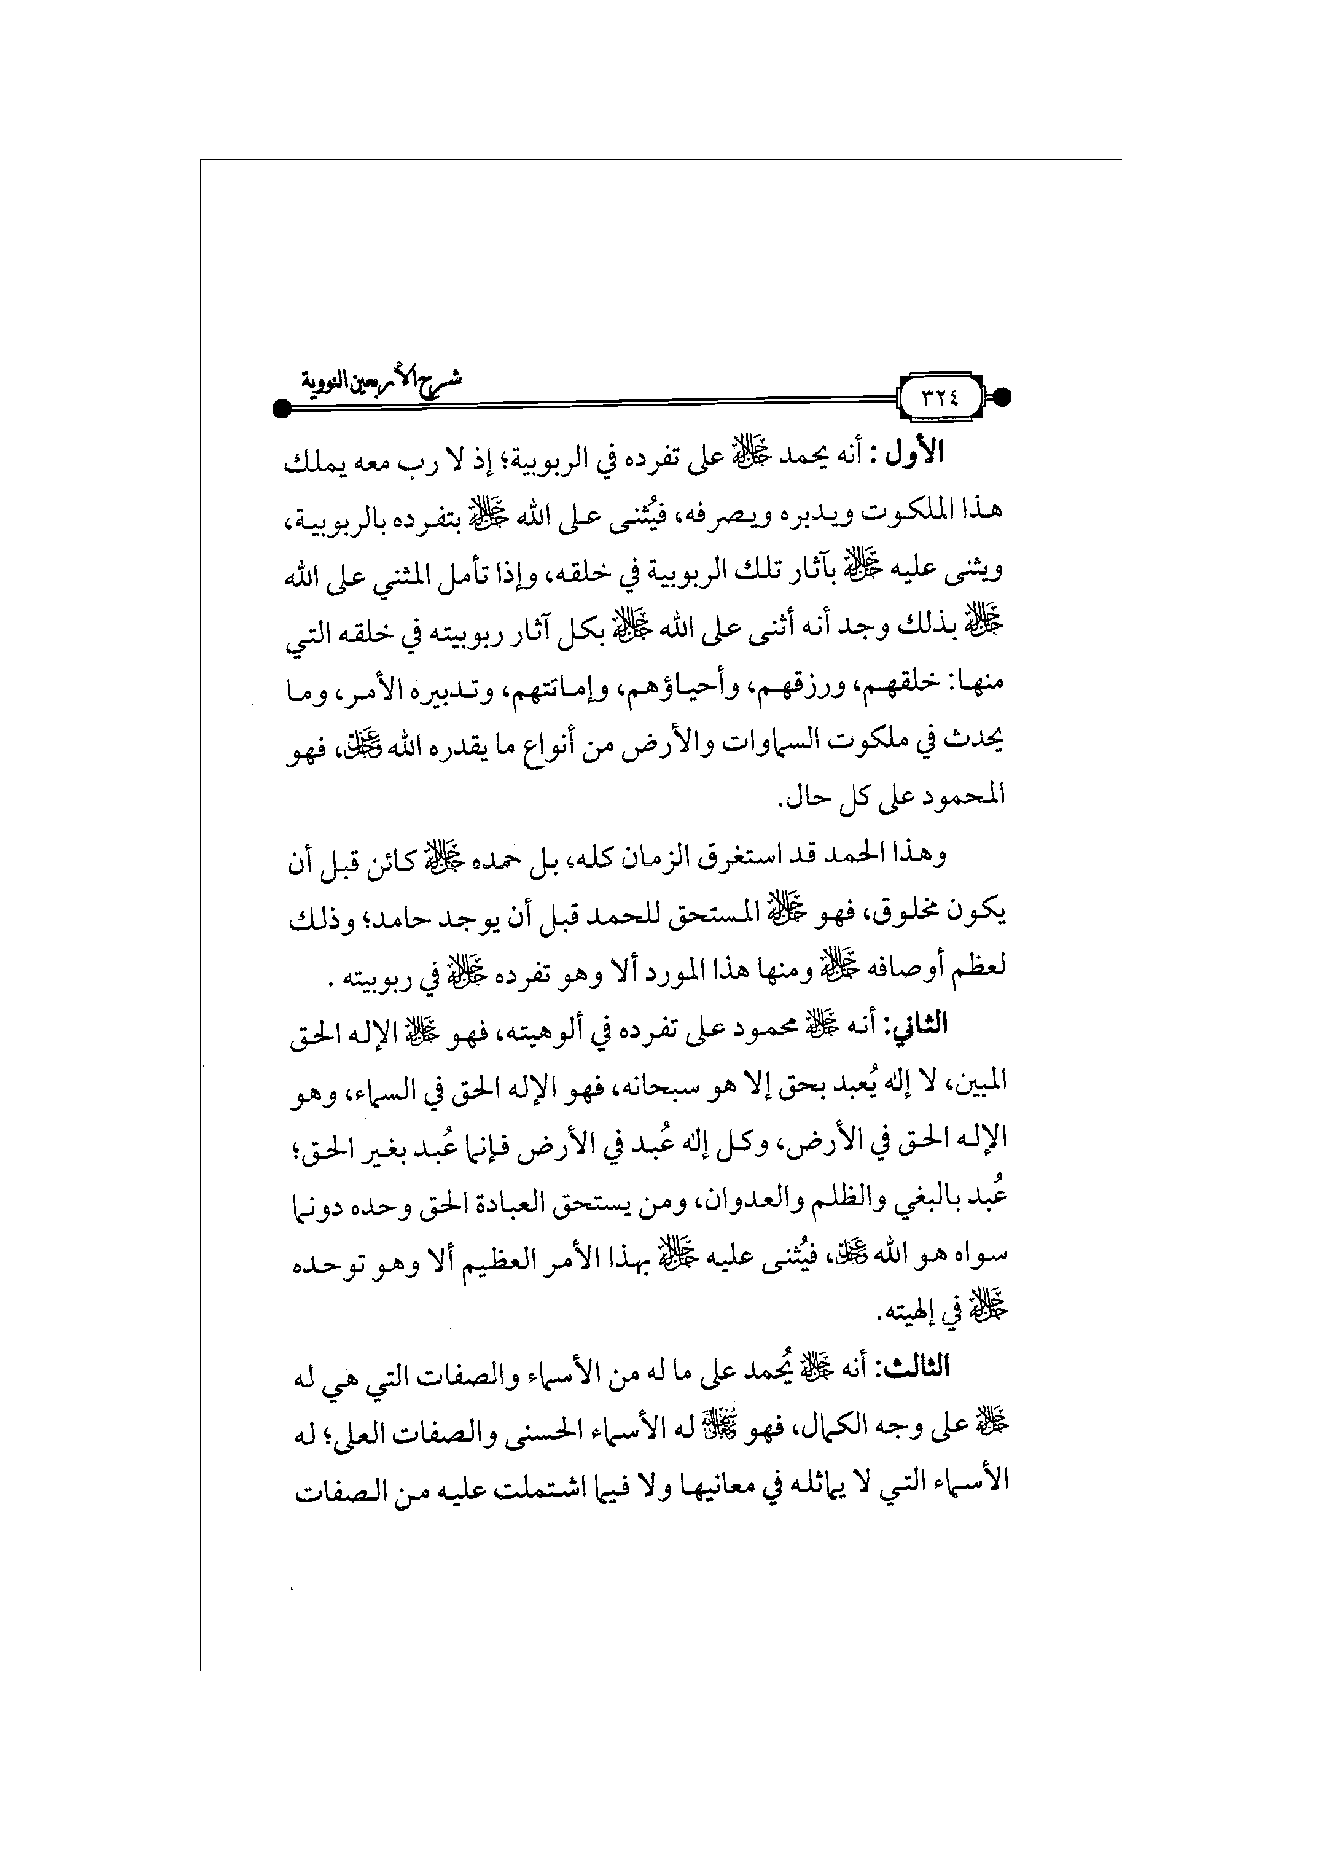 شرح الأربعين النووية
٣٢٤
الأول: أنه يحمد ﷻ على تفرده في الربوبية؛ إذ لا رب معه يملك
هذا الملكوت ويدبره ويصرفه، فيُثنى على الله ﷻ بتفرده بالربوبية،
ويثنى عليه ﷻ بآثار تلك الربوبية في خلقه، وإذا تأمل المثني على الله
ﷻ بذلك وجد أنه أثنى على الله ﷻ بكل آثار ربوبيته في خلقه التي
منها: خلقهم، ورزقهم، وأحياؤهم، وإماتتهم، وتدبيره الأمر، وما
يحدث في ملكوت السماوات والأرض من أنواع ما يقدره الله عز وجل، فهو
المحمود على كل حال.
وهذا الحمد قد استغرق الزمان كله، بل حمده ﷻ كائن قبل أن
يكون مخلوق، فهو ﷻ المستحق للحمد قبل أن يوجد حامد؛ وذلك
لعظم أوصافه ﷻ ومنها هذا المورد ألا وهو تفرده ﷻ في ربوبيته .
الثاني: أنه ﷻ محمود على تفرده في ألوهيته، فهو ﷻ الإله الحق
المبين، لا إله يُعبد بحق إلا هو سبحانه، فهو الإله الحق في السماء، وهو
الإله الحق في الأرض، وكل إله عُبد في الأرض فإنما عُبد بغير الحق؛
عُبد بالبغي والظلم والعدوان، ومن يستحق العبادة الحق وحده دونما
سواه هو الله عز وجل، فيُثنى عليه ﷻ بهذا الأمر العظيم ألا وهو توحده
ﷻ في إلهيته.
الثالث: أنه ﷻ يُحمد على ما له من الأسماء والصفات التي هي له
ﷻ على وجه الكمال، فهو سبحانه له الأسماء الحسنى والصفات العلى؛ له
الأسماء التي لا يماثله في معانيها ولا فيما اشتملت عليه من الصفات